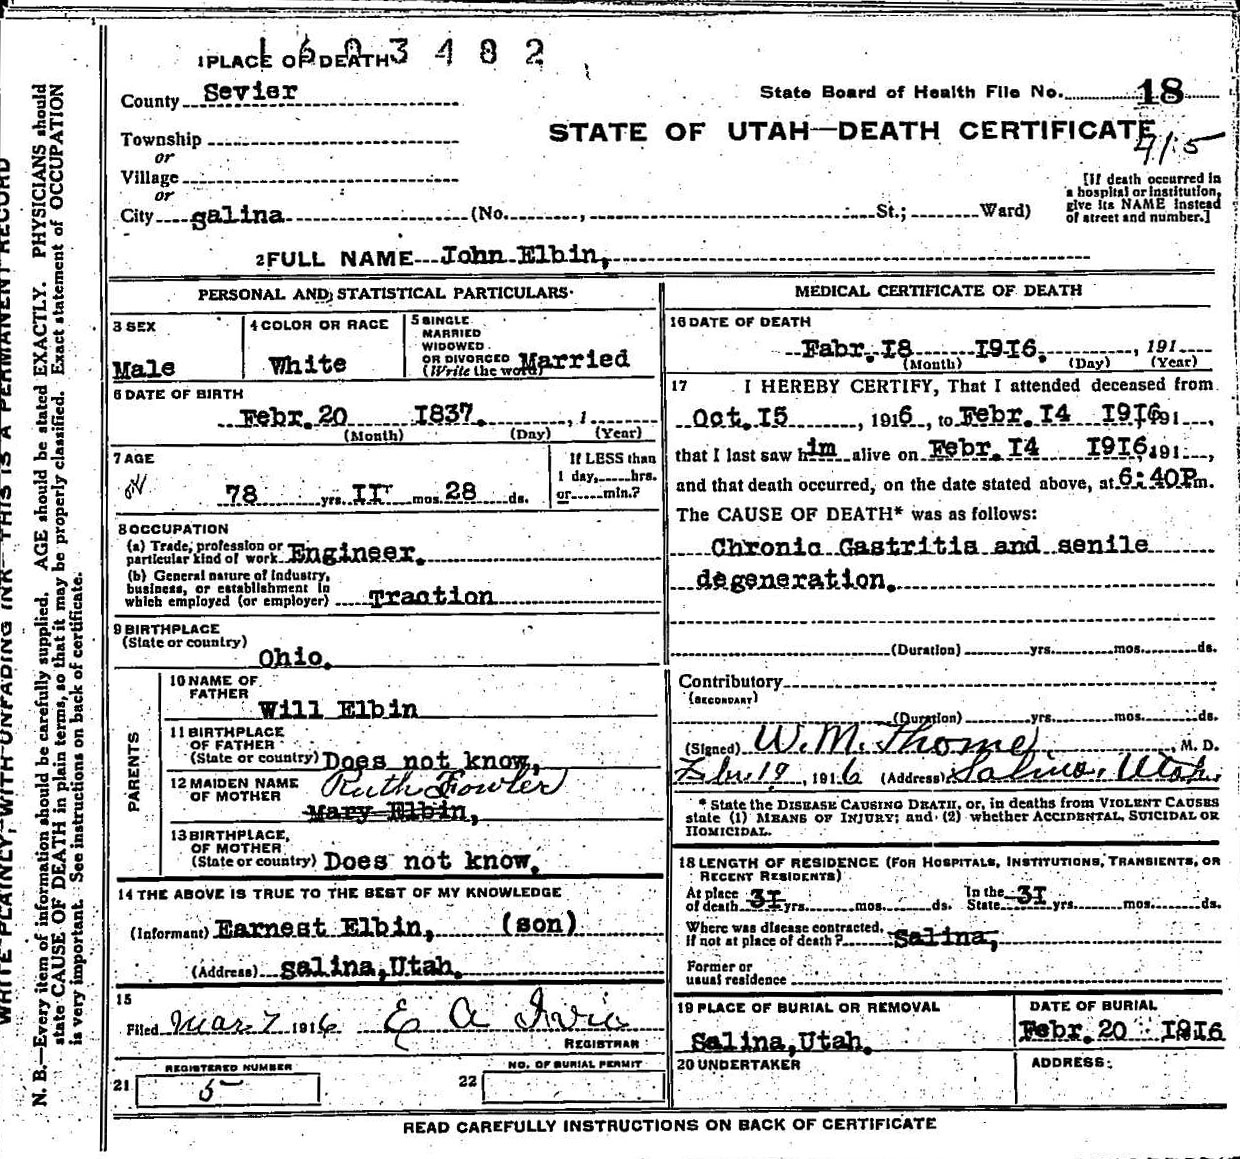 1603402
1 PLACE OF DEATH
County Sevier
State Board of Health File No. 18
STATE OF UTAH—DEATH CERTIFICATE
Township
or
Village
or
City salina (No. , St.; Ward)
[If death occurred in
a hospital or institution,
give its NAME instead
of street and number.]
2 FULL NAME John Elbin,
PERSONAL AND STATISTICAL PARTICULARS
3 SEX
Male
4 COLOR OR RACE
White
5 SINGLE
MARRIED
WIDOWED
OR DIVORCED
(Write the word) Married
6 DATE OF BIRTH
Febr. 20 1837. , 1
(Month) (Day) (Year)
7 AGE
78 yrs. II mos. 28 ds.
If LESS than
1 day, hrs.
or min.?
8 OCCUPATION
(a) Trade, profession or
particular kind of work Engineer.
(b) General nature of Industry,
business, or establishment in
which employed (or employer) Traction
9 BIRTHPLACE
(State or country)
Ohio.
PARENTS
10 NAME OF
FATHER
Will Elbin
11 BIRTHPLACE
OF FATHER
(State or country) Does not know,
12 MAIDEN NAME
OF MOTHER
Ruth Fowler
Mary Elbin,
13 BIRTHPLACE,
OF MOTHER
(State or country) Does not know.
14 THE ABOVE IS TRUE TO THE BEST OF MY KNOWLEDGE
(Informant) Earnest Elbin, (son)
(Address) salina,Utah.
15
Filed Mar 7 1916 E A Ivie
REGISTRAR
REGISTERED NUMBER
21 5
NO. OF BURIAL PERMIT
22
MEDICAL CERTIFICATE OF DEATH
16 DATE OF DEATH
Fabr. I8 I9I6. , 191
(Month) (Day) (Year)
17 I HEREBY CERTIFY, That I attended deceased from
Oct. I5 , 1916, to Febr. I4 I9I6 191 ,
that I last saw him alive on Febr. I4 I9I6, 191 ,
and that death occurred, on the date stated above, at 6:40P m.
The CAUSE OF DEATH* was as follows:
Chronic Gastritis and senile
degeneration.
(Duration) yrs. mos. ds.
Contributory
(SECONDARY)
(Duration) yrs. mos. ds.
(Signed) W. M. Thome , M. D.
Febr 19 , 1916 (Address) Salina, Utah.
* State the DISEASE CAUSING DEATH, or, in deaths from VIOLENT CAUSES
state (1) MEANS OF INJURY; and (2) whether ACCIDENTAL, SUICIDAL OR
HOMICIDAL.
18 LENGTH OF RESIDENCE (FOR HOSPITALS, INSTITUTIONS, TRANSIENTS, OR
RECENT RESIDENTS)
At place
of death 3I yrs. mos. ds.
In the
State 3I yrs. mos. ds.
Where was disease contracted,
If not at place of death? Salina,
Former or
usual residence
19 PLACE OF BURIAL OR REMOVAL
Salina,Utah.
DATE OF BURIAL
Febr. 20 I9I6
20 UNDERTAKER
ADDRESS:
READ CAREFULLY INSTRUCTIONS ON BACK OF CERTIFICATE
WRITE PLAINLY, WITH UNFADING INK—THIS IS A PERMANENT RECORD
N. B.—Every item of information should be carefully supplied. AGE should be stated EXACTLY. PHYSICIANS should
state CAUSE OF DEATH in plain terms, so that it may be properly classified. Exact statement of OCCUPATION
is very important. See instructions on back of certificate.